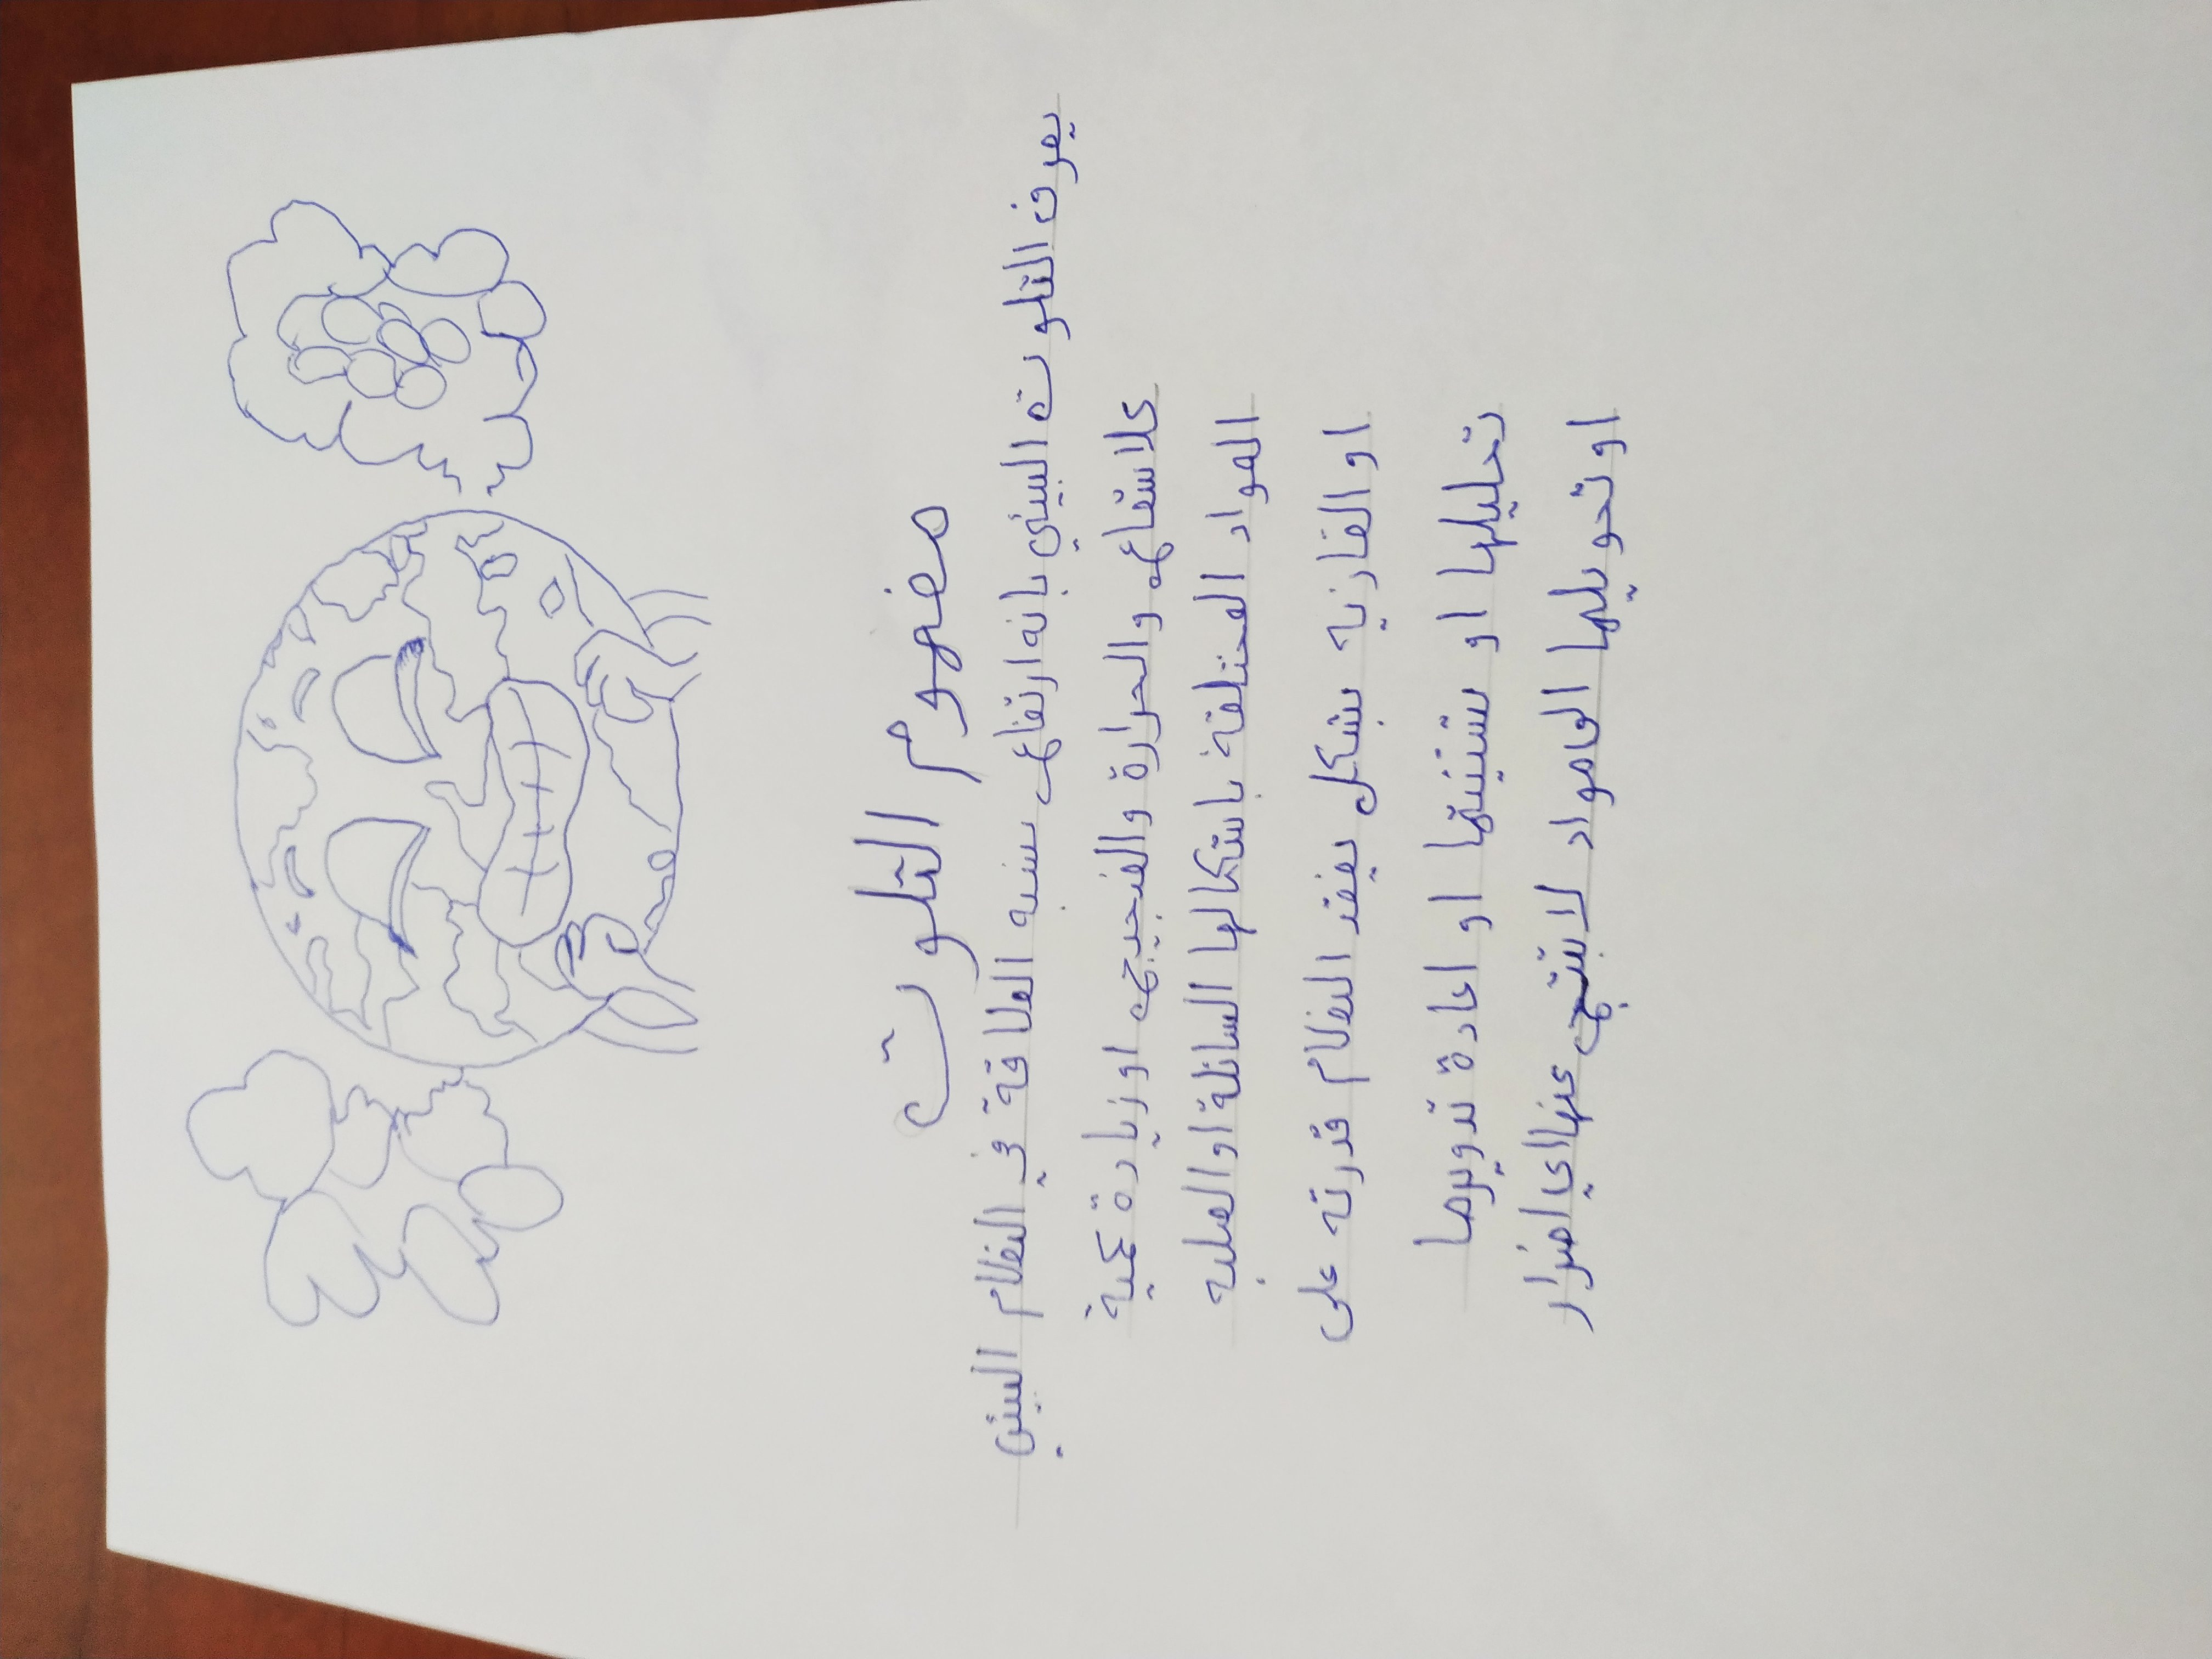 مفهوم التلوت
يعرف التلوت البيئي بانه ارتفاع سنبه الطاقة في النظام البيئي
علاشعاع والحرارة والضجيج او زيادة كمية
المواد المختلفة باشكالها السائلة او الصلبه
او الغازيه بشكل يفقد النظام قدرته على
تحليلها او شتيتها او اعادة تدويرها
او تحويليها العامواد لا ينتج عنها اي اضرار